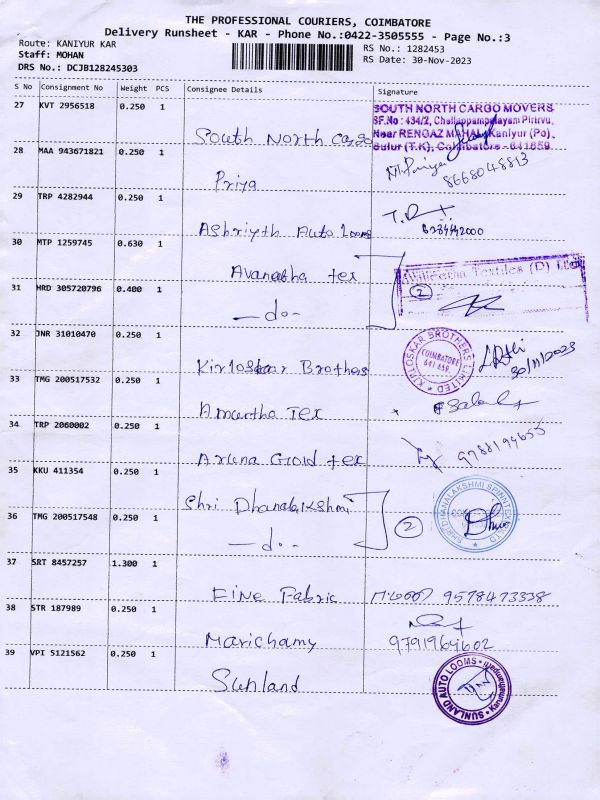 THE PROFESSIONAL COURIERS, COIMBATORE
Delivery Runsheet - KAR - Phone No.:0422-3505555 - Page No.:3
Route: KANIYUR KAR
RS No.: 1282453
Staff: MOHAN
RS Date: 30-Nov-2023
DRS No.: DCJB128245303
S No Consignment No Weight PCS Consignee Details Signature
27 KVT 2956518 0.250 1
SOUTH NORTH CARGO MOVERS
SF.No : 434/2, Chellappampalayam Pirivu,
Near RENGAZ MAHAL, Kaniyur (Po)
Sulur (T.K), Coimbatore - 641659.
South North Cargo
28 MAA 943671821 0.250 1
Priya
8668048813
29 TRP 4282944 0.250 1
Ashriyth Auto Looms
30 MTP 1259745 0.630 1
Avanastha tex
Textiles (P) Ltd
31 HRD 305720796 0.400 1
2
—do—
32 JNR 31010470 0.250 1
Kirloskar Brothers
KIRLOSKAR BROTHERS LIMITED
COIMBATORE
641 659.
30/11/2023
33 TMG 200517532 0.250 1
Amurtha Tex
34 TRP 2060002 0.250 1
Aruna Gold tex
9788194655
35 KKU 411354 0.250 1
Shri Dhanalakshmi
SHRI DHANALAKSHMI SPINNTEX
36 TMG 200517548 0.250 1
2
—do—
37 SRT 8457257 1.300 1
Fine Fabric
9578473338
38 STR 187989 0.250 1
Marichamy
9791964602
39 VPI 5121562 0.250 1
Sunland
SUNLAND AUTO LOOMS